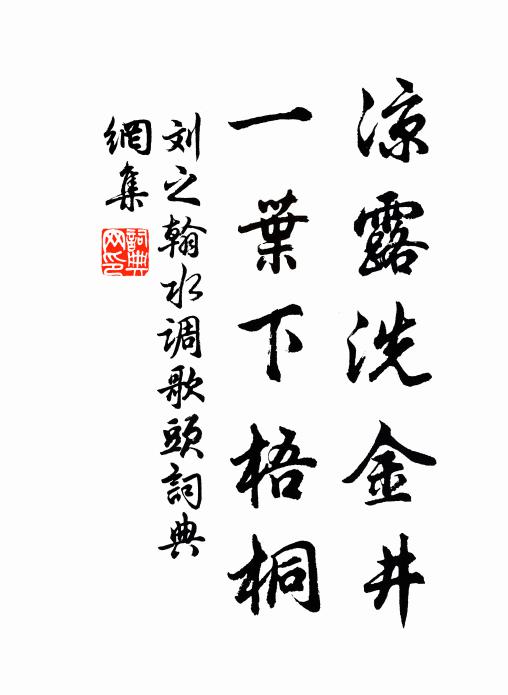 凉露洗金井
一葉下梧桐
刘之翰水调歌頭詞典
網集
詞典
网印